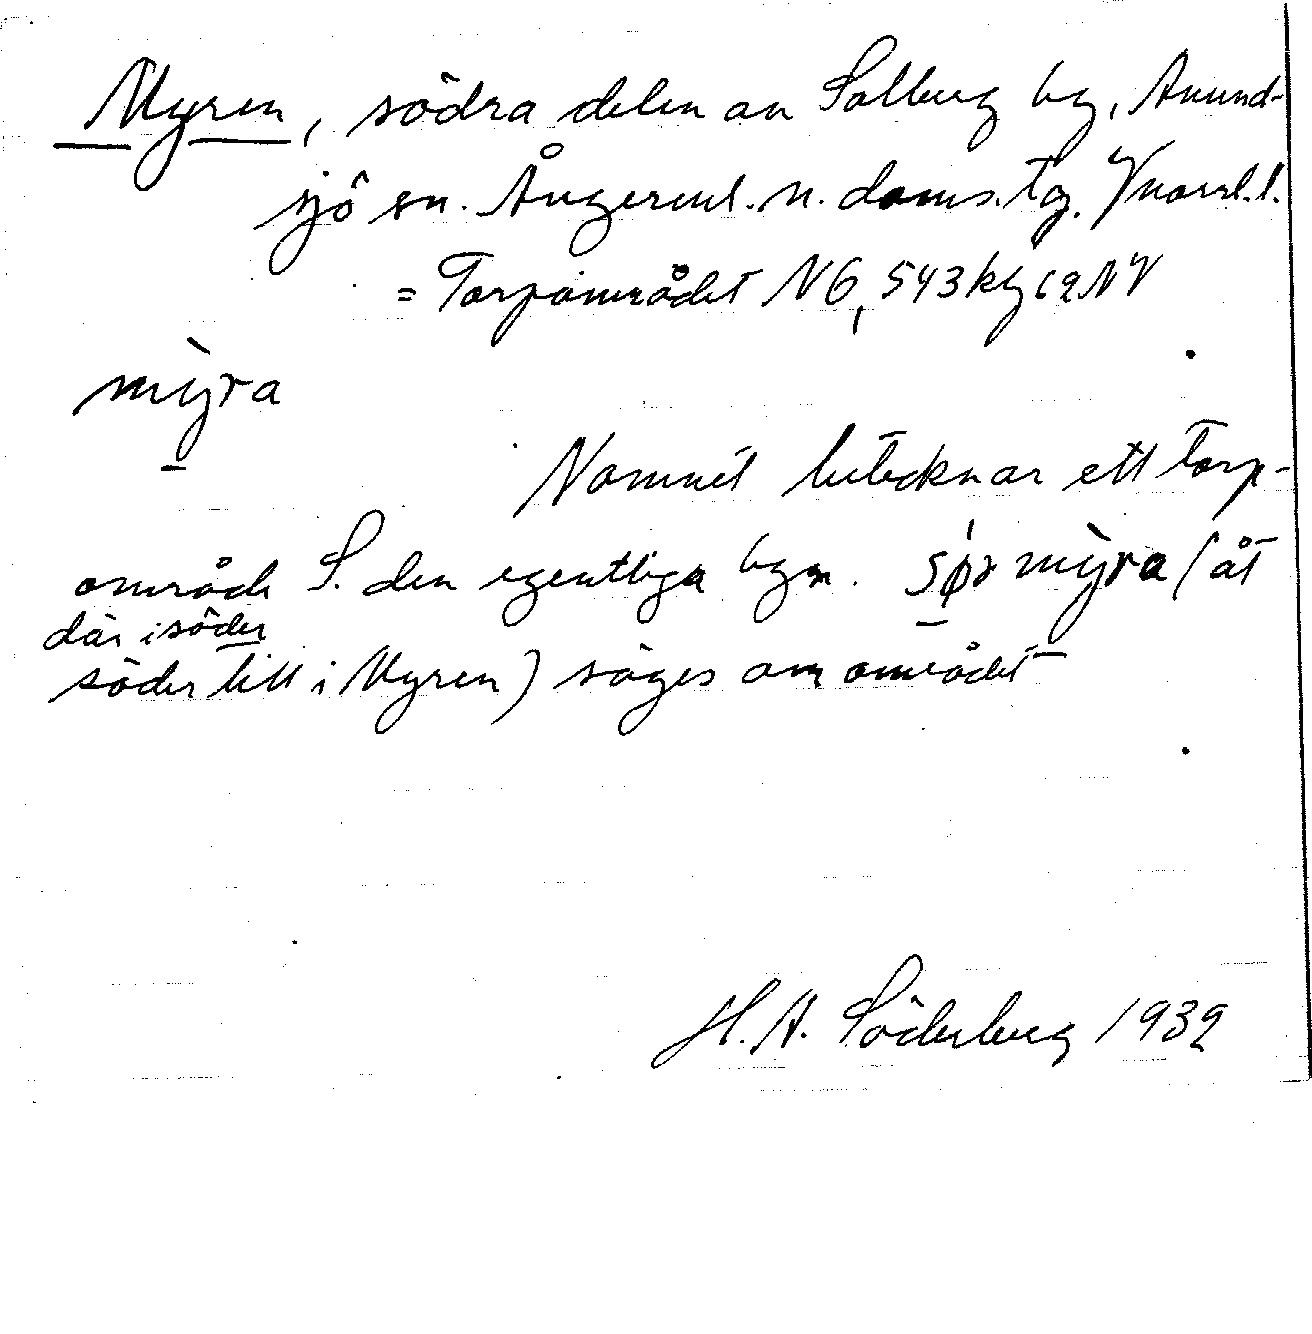 Myren, södra delen av Solberg by, Anund-
sjö sn. Ångerml. n. doms. tg. Vnorrl. l.
= Torpområdet NG, 543 kg 62 NV
mỳra
Namnet betecknar ett torp-
område S. den egentliga byn. sør mỳra (åt
där i söder
söder till i Myren) säges om området
H. A. Söderberg 1939